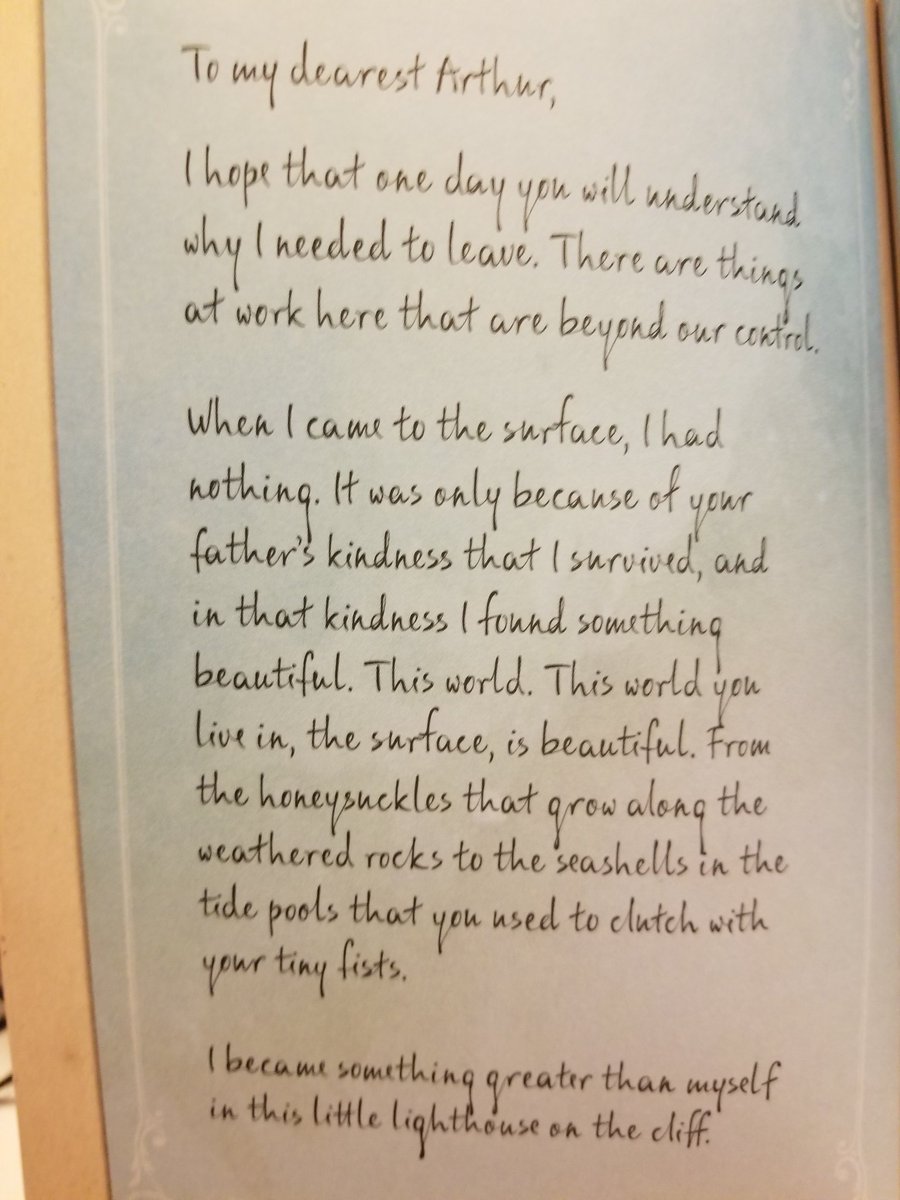 To my dearest Arthur,
I hope that one day you will understand
why I needed to leave. There are things
at work here that are beyond our control.
When I came to the surface, I had
nothing. It was only because of your
father's kindness that I survived, and
in that kindness I found something
beautiful. This world. This world you
live in, the surface, is beautiful. From
the honeysuckles that grow along the
weathered rocks to the seashells in the
tide pools that you used to clutch with
your tiny fists.
I became something greater than myself
in this little lighthouse on the cliff.